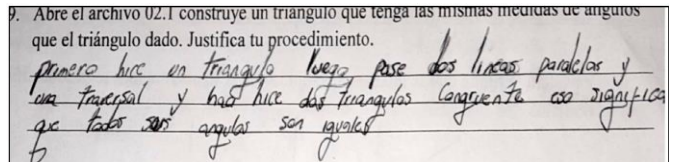 9. Abre el archivo 02.1 construye un triángulo que tenga las mismas medidas de ángulos
que el triángulo dado. Justifica tu procedimiento.
primero hice un triangulo luego pase dos lineas paralelas y
una traversal y hice dos triangulos congruente eso significa
que todos sus angulos son iguales